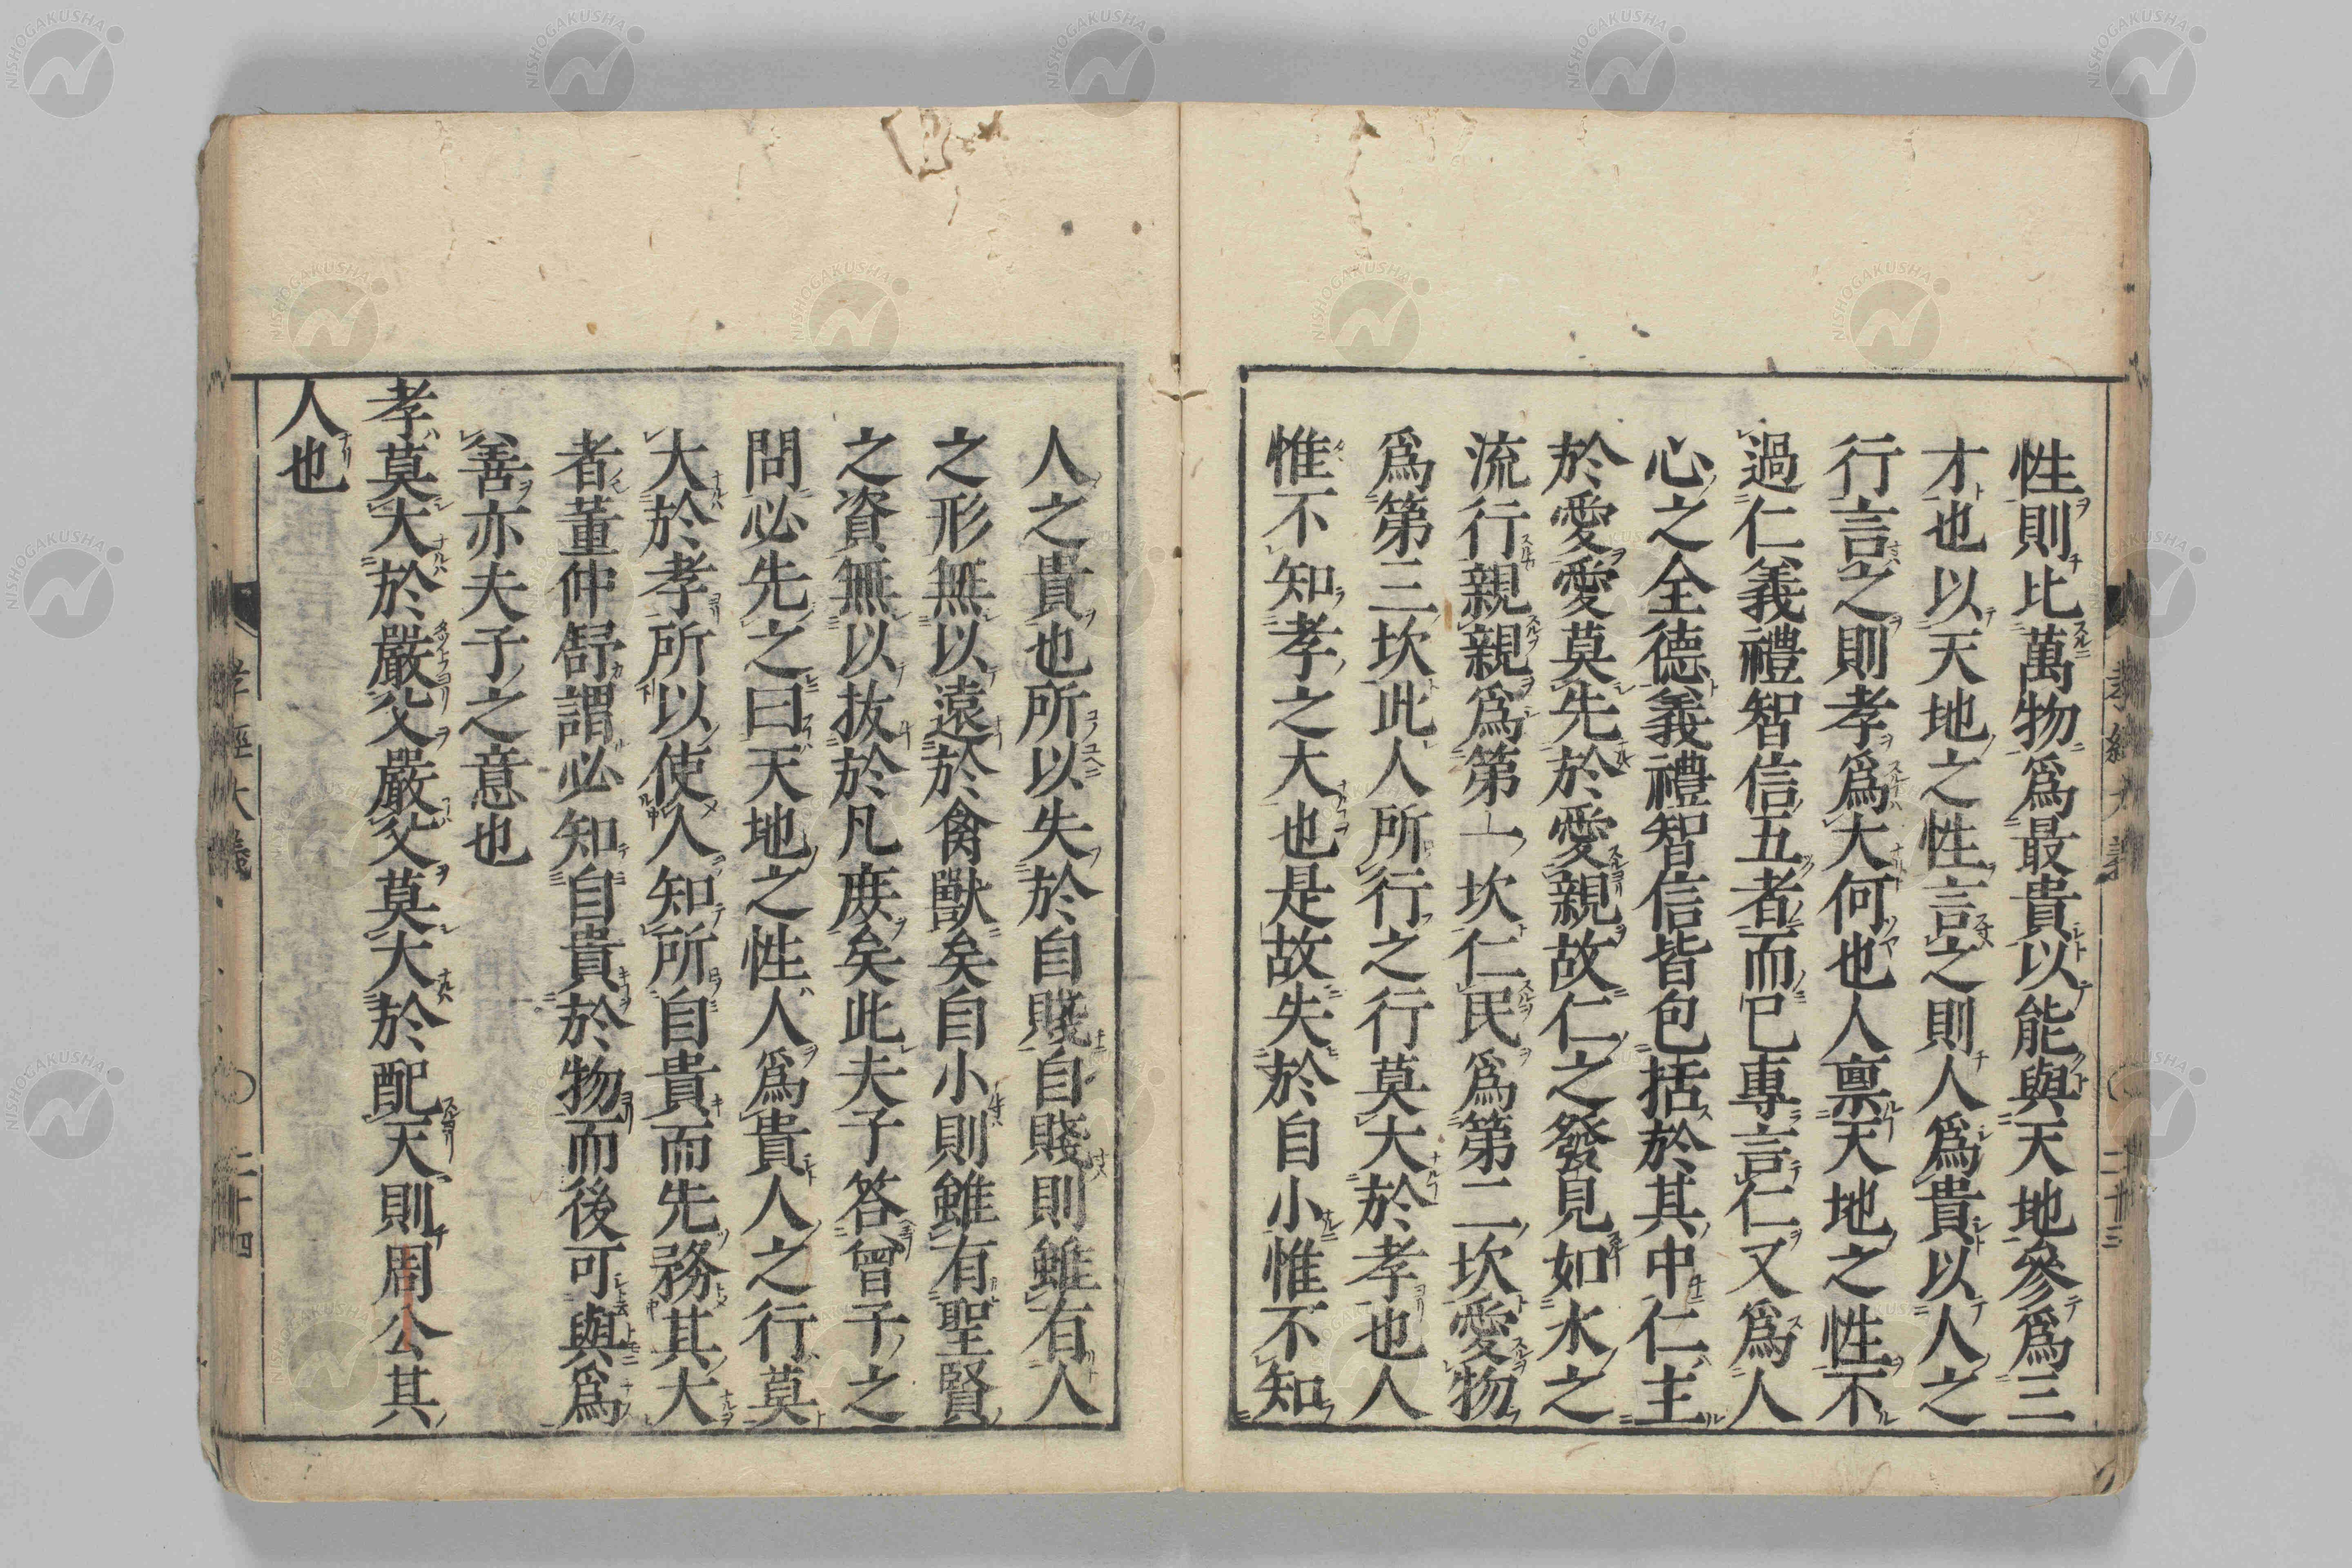 性則比萬物爲最貴以能與天地參爲三
才也以天地之性言之則人爲貴以人之
行言之則孝爲大何也人禀天地之性不
過仁義禮智信五者而已專言仁又爲人
心之全德義禮智信皆包括於其中仁主
於愛愛莫先於愛親故仁之發見如水之
流行親親爲第一坎仁民爲第二坎愛物
爲第三坎此人所行之行莫大於孝也人
惟不知孝之大也是故失於自小惟不知
人之貴也所以失於自賤自賤則雖有人
之形無以遠於禽獸矣自小則雖有聖賢
之資無以拔於凡庻矣此夫子答曾子之
問必先之曰天地之性人爲貴人之行莫
大於孝所以使人知所自貴而先務其大
者董仲舒謂必知自貴於物而後可與爲
善亦夫子之意也
孝莫大於嚴父嚴父莫大於配天則周公其
人也
孝經大義
二十四
NISHOGAKUSHA